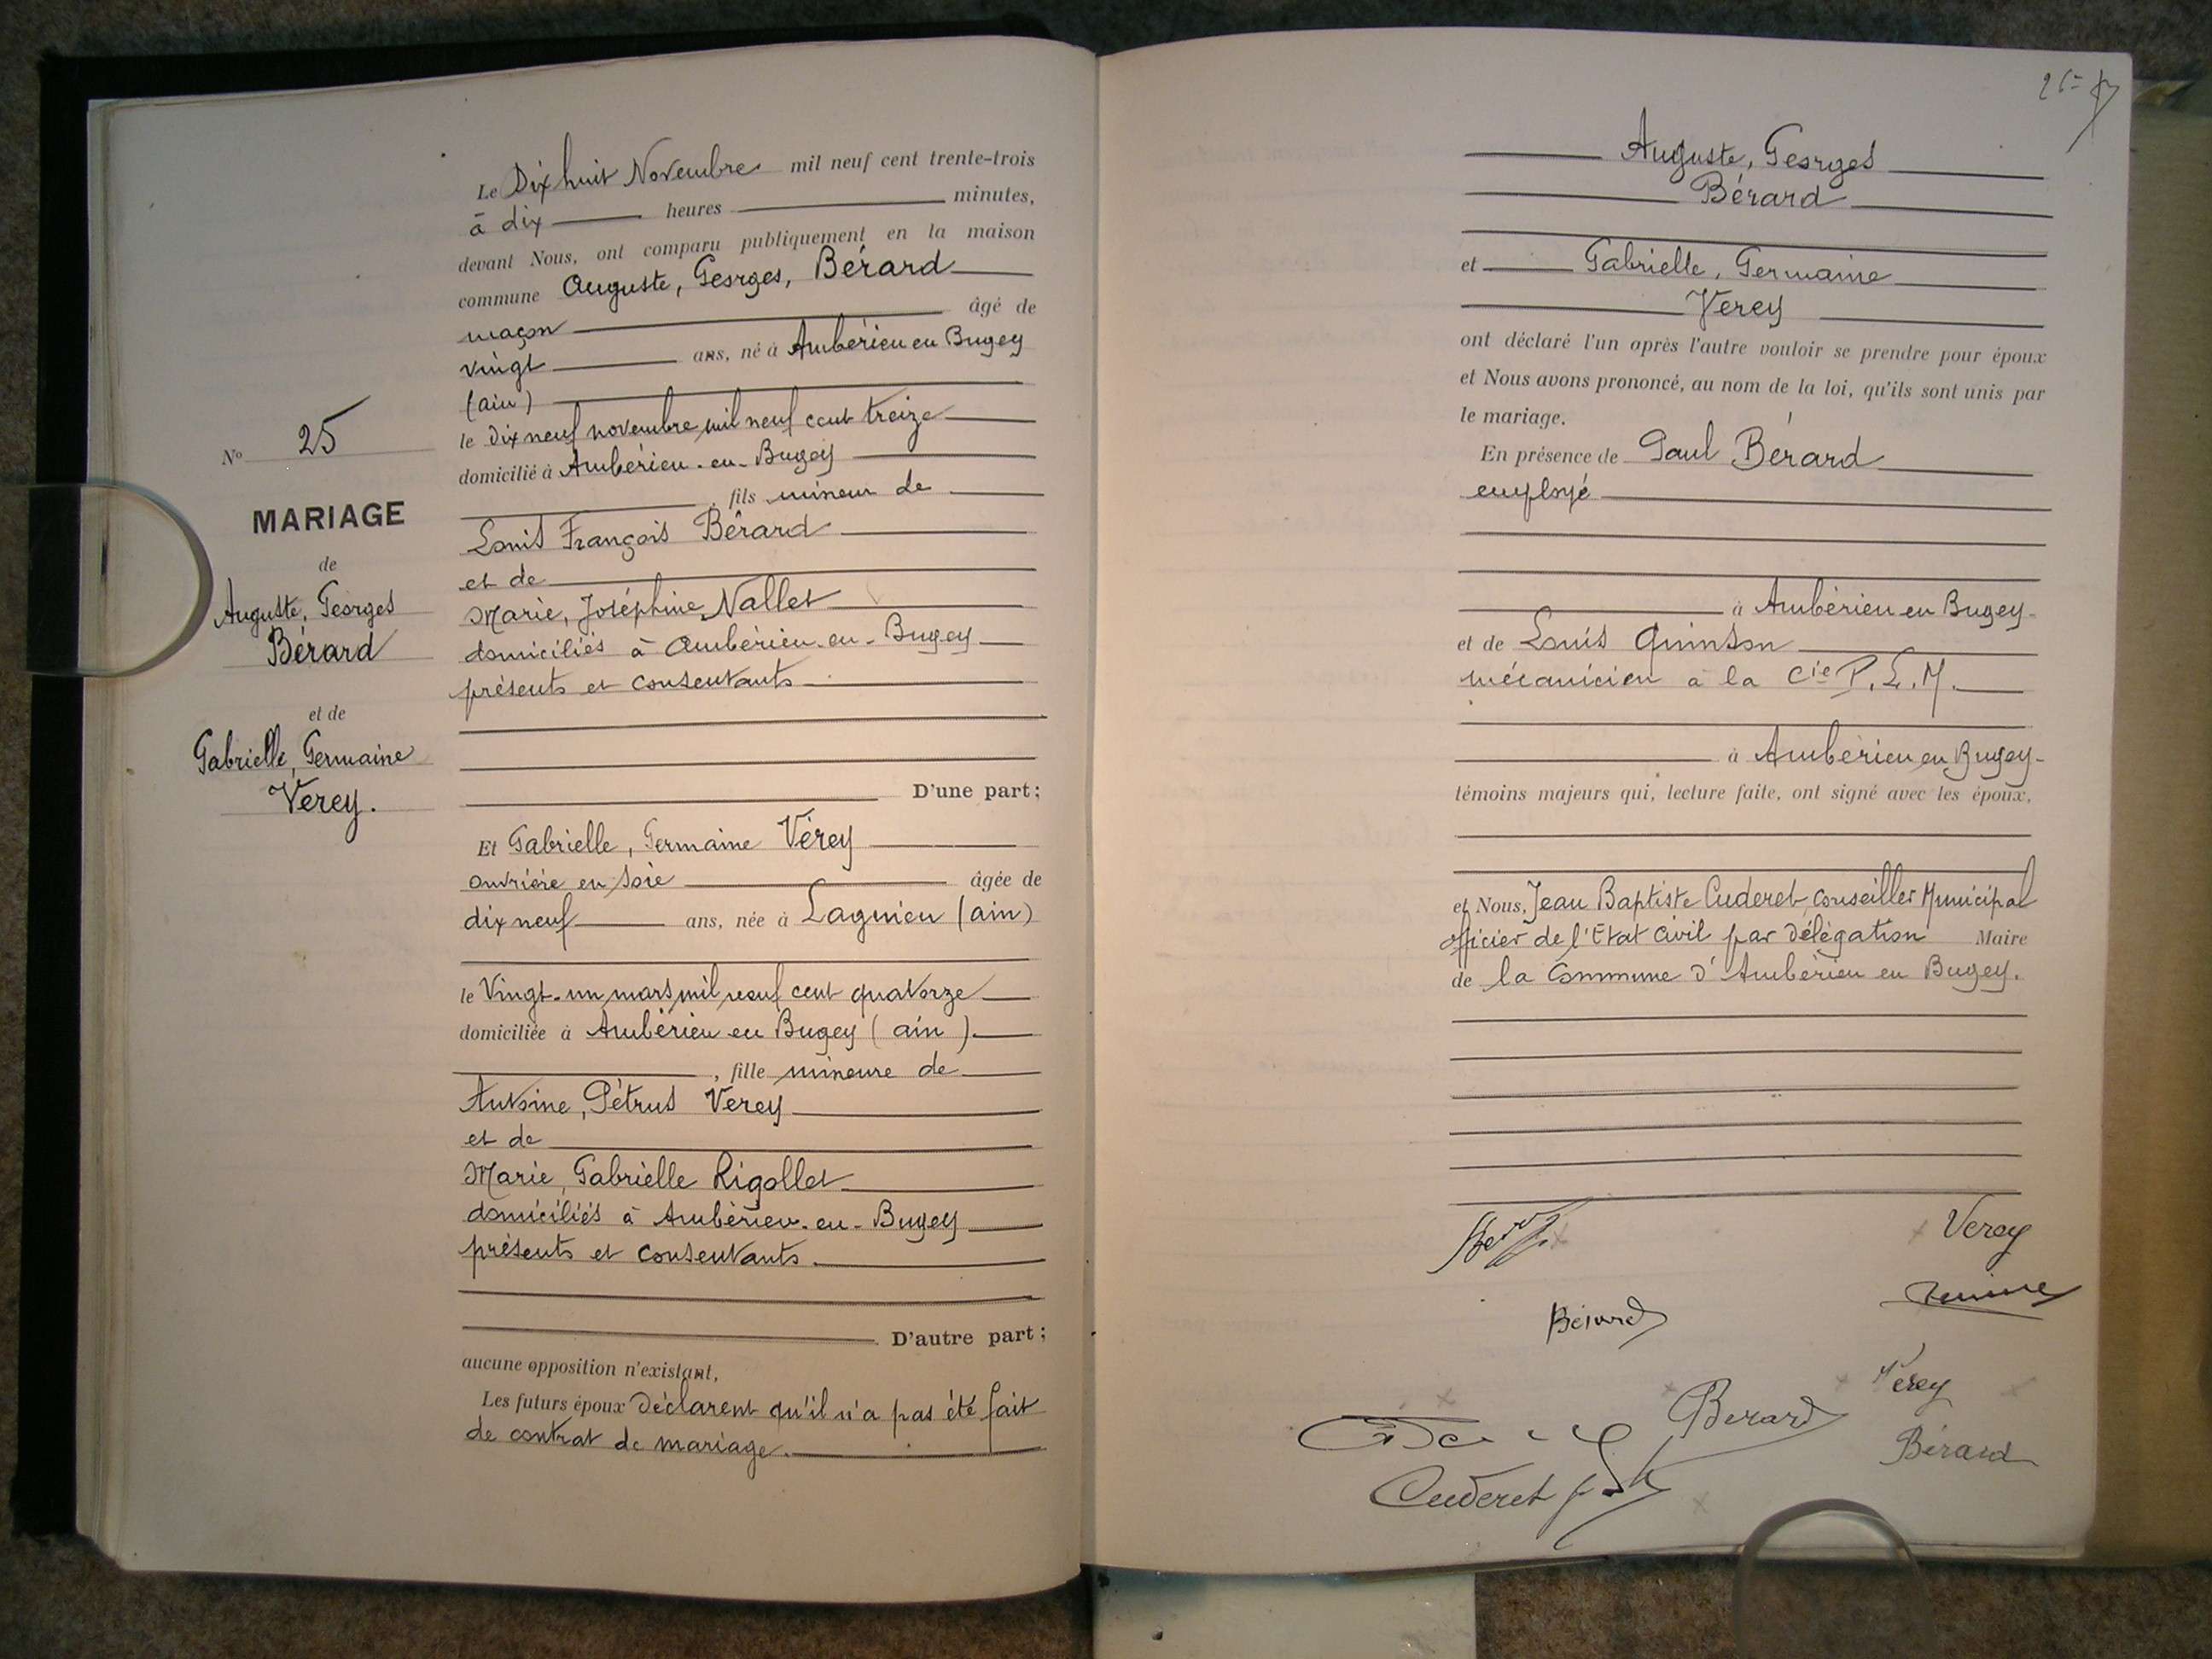 N° 25
MARIAGE
de
Auguste, Georges
Bérard
et de
Gabrielle, Germaine
Verey.
Le Dix huit Novembre mil neuf cent trente-trois
à dix heures minutes,
devant Nous, ont comparu publiquement en la maison
commune Auguste, Georges, Bérard
maçon âgé de
vingt ans, né à Ambérieu en Bugey
(ain)
le dix neuf novembre mil neuf cent treize
domicilié à Ambérieu-en-Bugey
, fils mineur de
Louis François Bérard
et de
Marie, Joséphine, Nallet
domiciliés à Ambérieu-en-Bugey
présents et consentants
D'une part;
Et Gabrielle, Germaine Verey
ouvrière en soie âgée de
dix neuf ans, née à Lagnieu (ain)
le Vingt-un mars mil neuf cent quatorze
domiciliée à Ambérieu en Bugey (ain)
, fille mineure de
Antoine, Pétrus Verey
et de
Marie, Gabrielle Rigollet
domiciliés à Ambérieu-en-Bugey
présents et consentants.
D'autre part;
aucune opposition n'existant,
Les futurs époux déclarent qu'il n'a pas été fait
de contrat de mariage.
Auguste, Georges
Bérard
et Gabrielle, Germaine
Verey
ont déclaré l'un après l'autre vouloir se prendre pour époux
et Nous avons prononcé, au nom de la loi, qu'ils sont unis par
le mariage.
En présence de Paul Bérard
employé
à Ambérieu en Bugey
et de Louis Quinson
mécanicien à la Cie P.L.M.
à Ambérieu en Bugey
témoins majeurs qui, lecture faite, ont signé avec les époux,
et Nous, Jean Baptiste Cuderet, conseiller Municipal
officier de l'Etat civil par délégation Maire
de la Commune d'Ambérieu en Bugey.
Verey
Bérard
Verey
Berard
Bérard
Cuderet